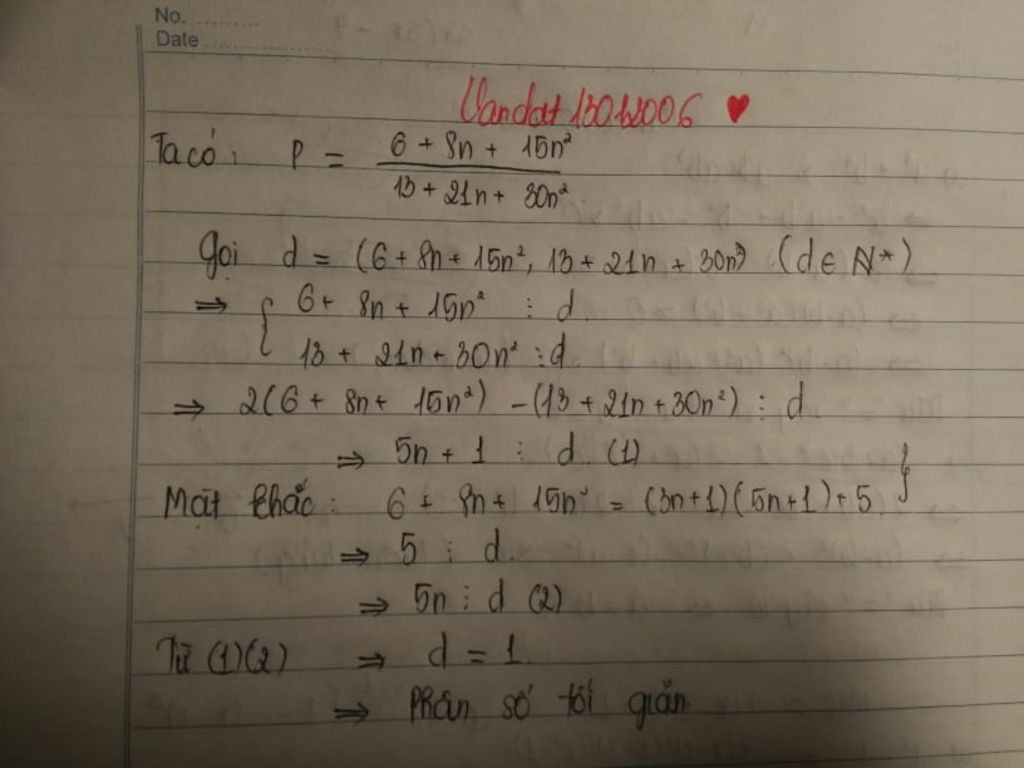 No. ..........
Date ....................
Vandat13012006 ♥
Ta có: P = \frac{6 + 8n + 15n²}{13 + 21n + 30n²}
Gọi d = (6 + 8n + 15n², 13 + 21n + 30n²) (d ∈ N*)
⇒ { 6 + 8n + 15n² ⋮ d
13 + 21n + 30n² ⋮ d
⇒ 2(6 + 8n + 15n²) - (13 + 21n + 30n²) ⋮ d
⇒ 5n + 1 ⋮ d (1) }
Mặt khác: 6 + 8n + 15n² = (3n+1)(5n+1) + 5
⇒ 5 ⋮ d.
⇒ 5n ⋮ d (2)
Từ (1)(2) ⇒ d = 1.
⇒ Phân số tối giản